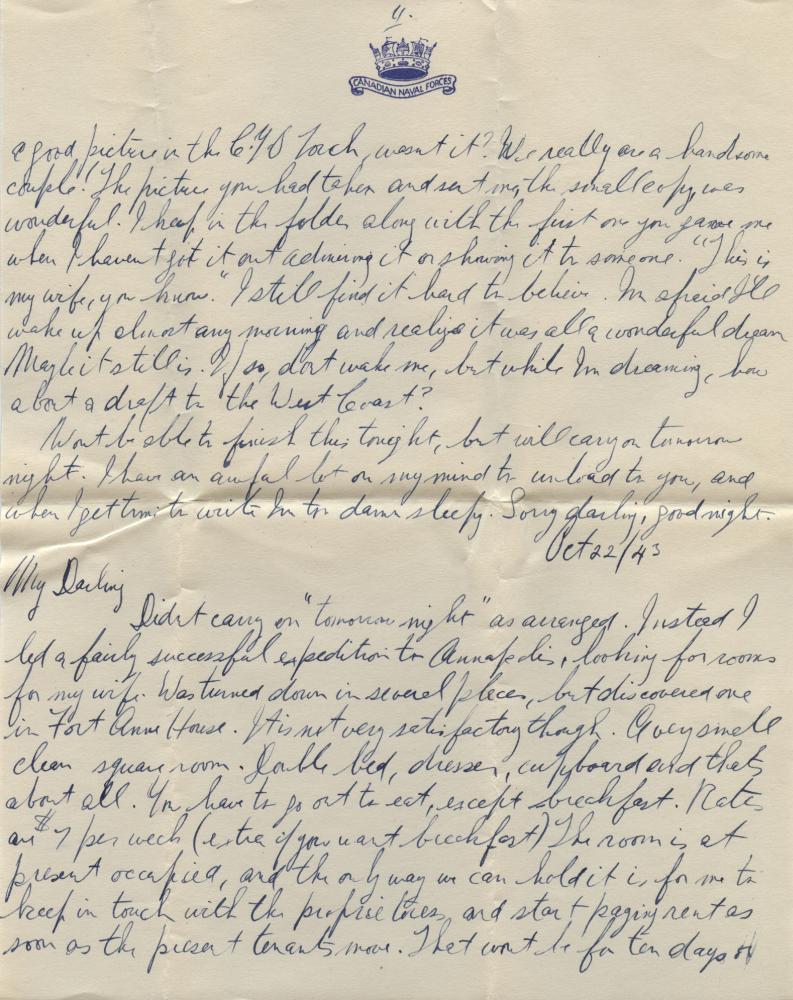 4.
CANADIAN NAVAL FORCES
a good picture in the C.Y.O Torch, wasnt it? We really are a handsome
couple! The picture you had taken and sent me, the small copy, was
wonderful. I keep in the folder along with the first one you gave me
when I havent got it out admiring it or showing it to someone. "This is
my wife, you know." I still find it hard to believe. Im afraid I'll
wake up almost any morning and realize it was all a wonderful dream
Maybe it still is. If so, dont wake me, but while Im dreaming, how
about a draft to the West Coast?
Wont be able to finish this tonight, but will carry on tomorrow
night. I have an awful lot on my mind to unload to you, and
when I get time to write Im too damn sleepy. Sorry darling, good night.
Oct 22/43
My Darling
Didnt carry on "tomorrow night" as arranged. Instead I
led a fairly successful expedition to Annapolis, looking for rooms
for my wife. Was turned down in several places, but discovered one
in Fort Anne House. It is not very satisfactory though. A very small
clean square room. Double bed, dresser, cupboard and thats
about all. You have to go out to eat, except breakfast. Rates
are $7 per week (extra if you want breakfast) The room is at
present occupied, and the only way we can hold it is for me to
keep in touch with the proprietress, and start paying rent as
soon as the present tenants move. That wont be for ten days or